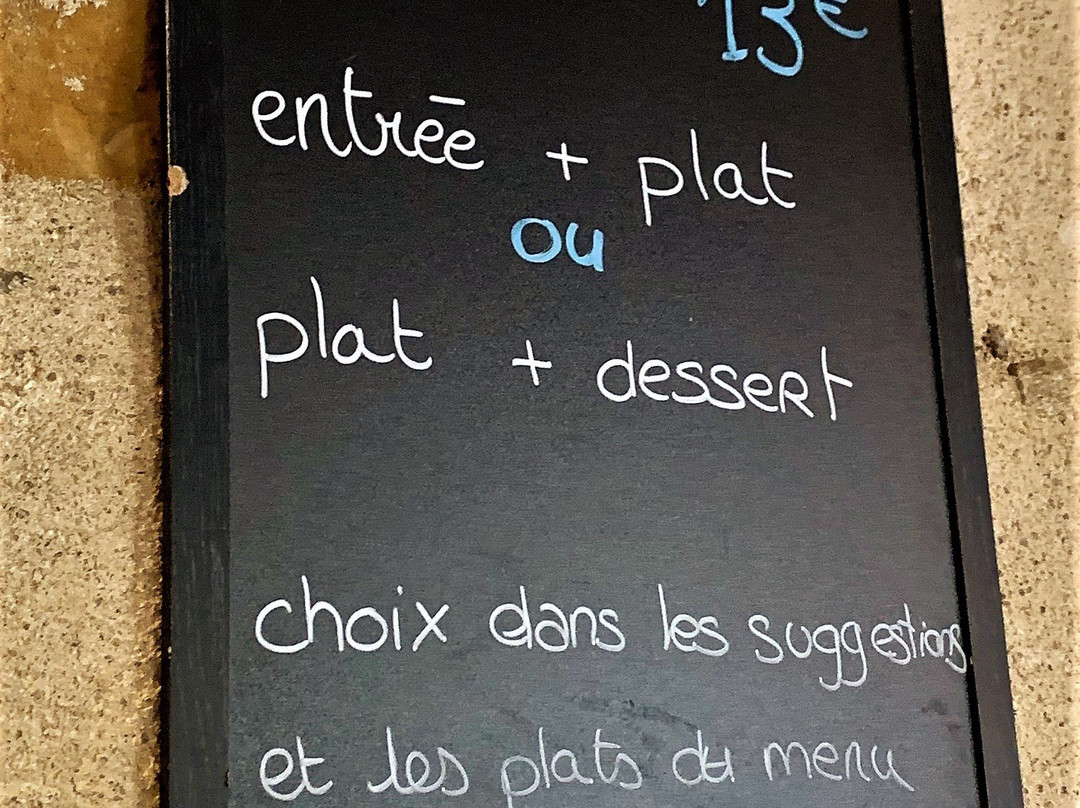 13€
entrée + plat
ou
plat + dessert
choix dans les suggestions
et les plats du menu